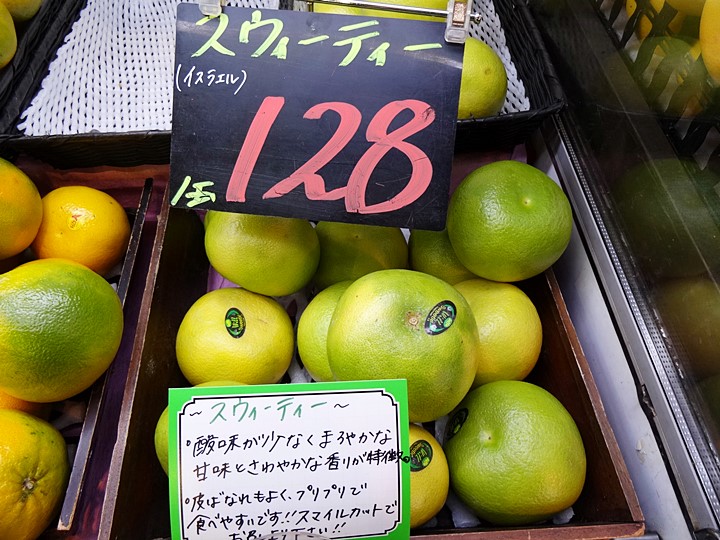 スウィーティー
(イスラエル)
1玉 128
～スウィーティー～
・酸味が少なくまろやかな
甘味とさわやかな香りが特徴。
・皮ばなれもよく、プリプリで
食べやすいです!!スマイルカットで
お召し上り下さい!!